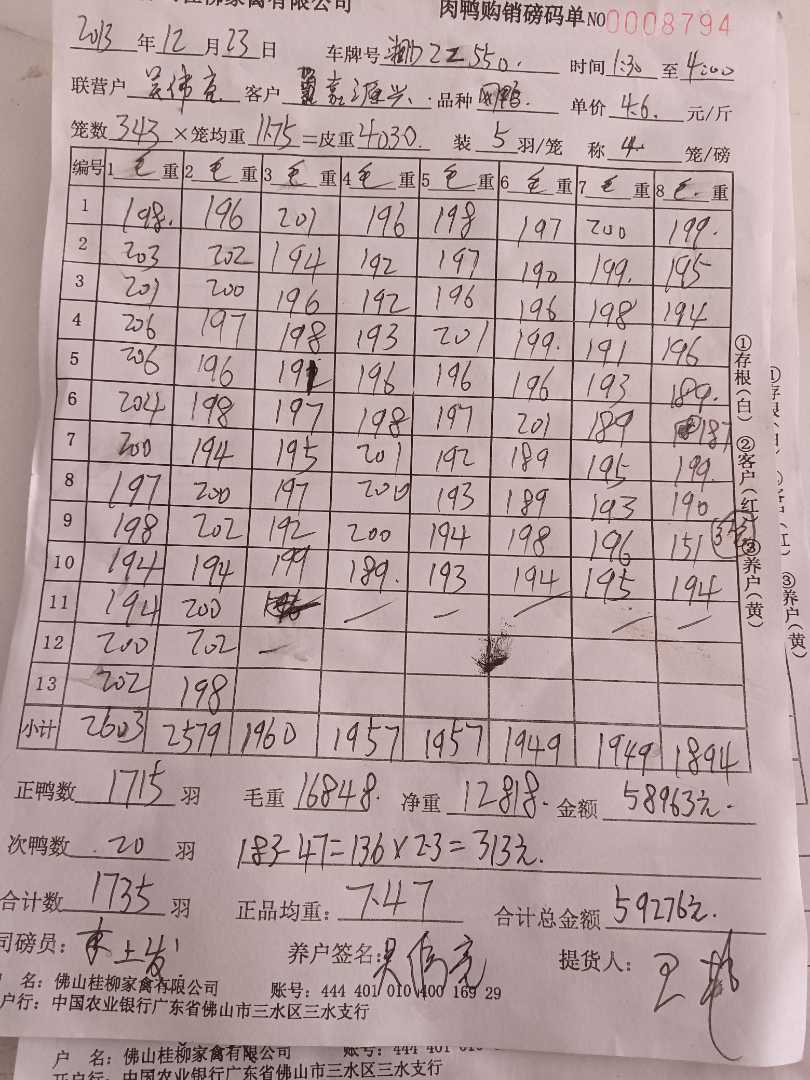 桂柳家禽有限公司 肉鸭购销磅码单 NO 0008794
2013 年 12 月 23 日 车牌号 550. 时间 1:30 至 4:00
联营户 吴伟亮 客户 嘉汇兴 品种 鸭. 单价 4.6. 元/斤
笼数 343 ×笼均重 11.75 =皮重 4030. 装 5 羽/笼 称 4. 笼/磅
编号 1 毛 重 2 毛 重 3 毛 重 4 毛 重 5 毛 重 6 毛 重 7 毛 重 8 毛. 重
1 198. 196 201 196 198 197 200 199.
2 203 202 194 192 197 190 199. 195
3 201 200 196 192 196 196 198 194
4 206 197 198 193 201 199. 191 196
5 206 196 191 196 196 196 193 189.
6 204 198 197 198 197 201 189 187
7 200 194 195 201 192 189 195 199.
8 197 200 197 200 193 189 193 190
9 198 202 192 200 194 198 196 151
10 194 194 199 189. 193 194 195 194
11 194 200 — — — — —
12 200 202 —
13 202 198
小计 2603 2579 1960 1957 1957 1949 1949 1894
正鸭数 1715 羽 毛重 16848. 净重 12818. 金额 58963元.
次鸭数 20 羽 183-47=136×2.3=313元.
合计数 1735 羽 正品均重: 7.47 合计总金额 59276元.
司磅员: 养户签名: 吴伟亮 提货人: 王
名: 佛山桂柳家禽有限公司 账号: 444 401 010 400 169 29
户行: 中国农业银行广东省佛山市三水区三水支行
①存根(白) ②客户(红) ③养户(黄)
③养户(黄)
户 名: 佛山桂柳家禽有限公司 账号: 444 401 010
开户行: 中国农业银行广东省佛山市三水区三水支行